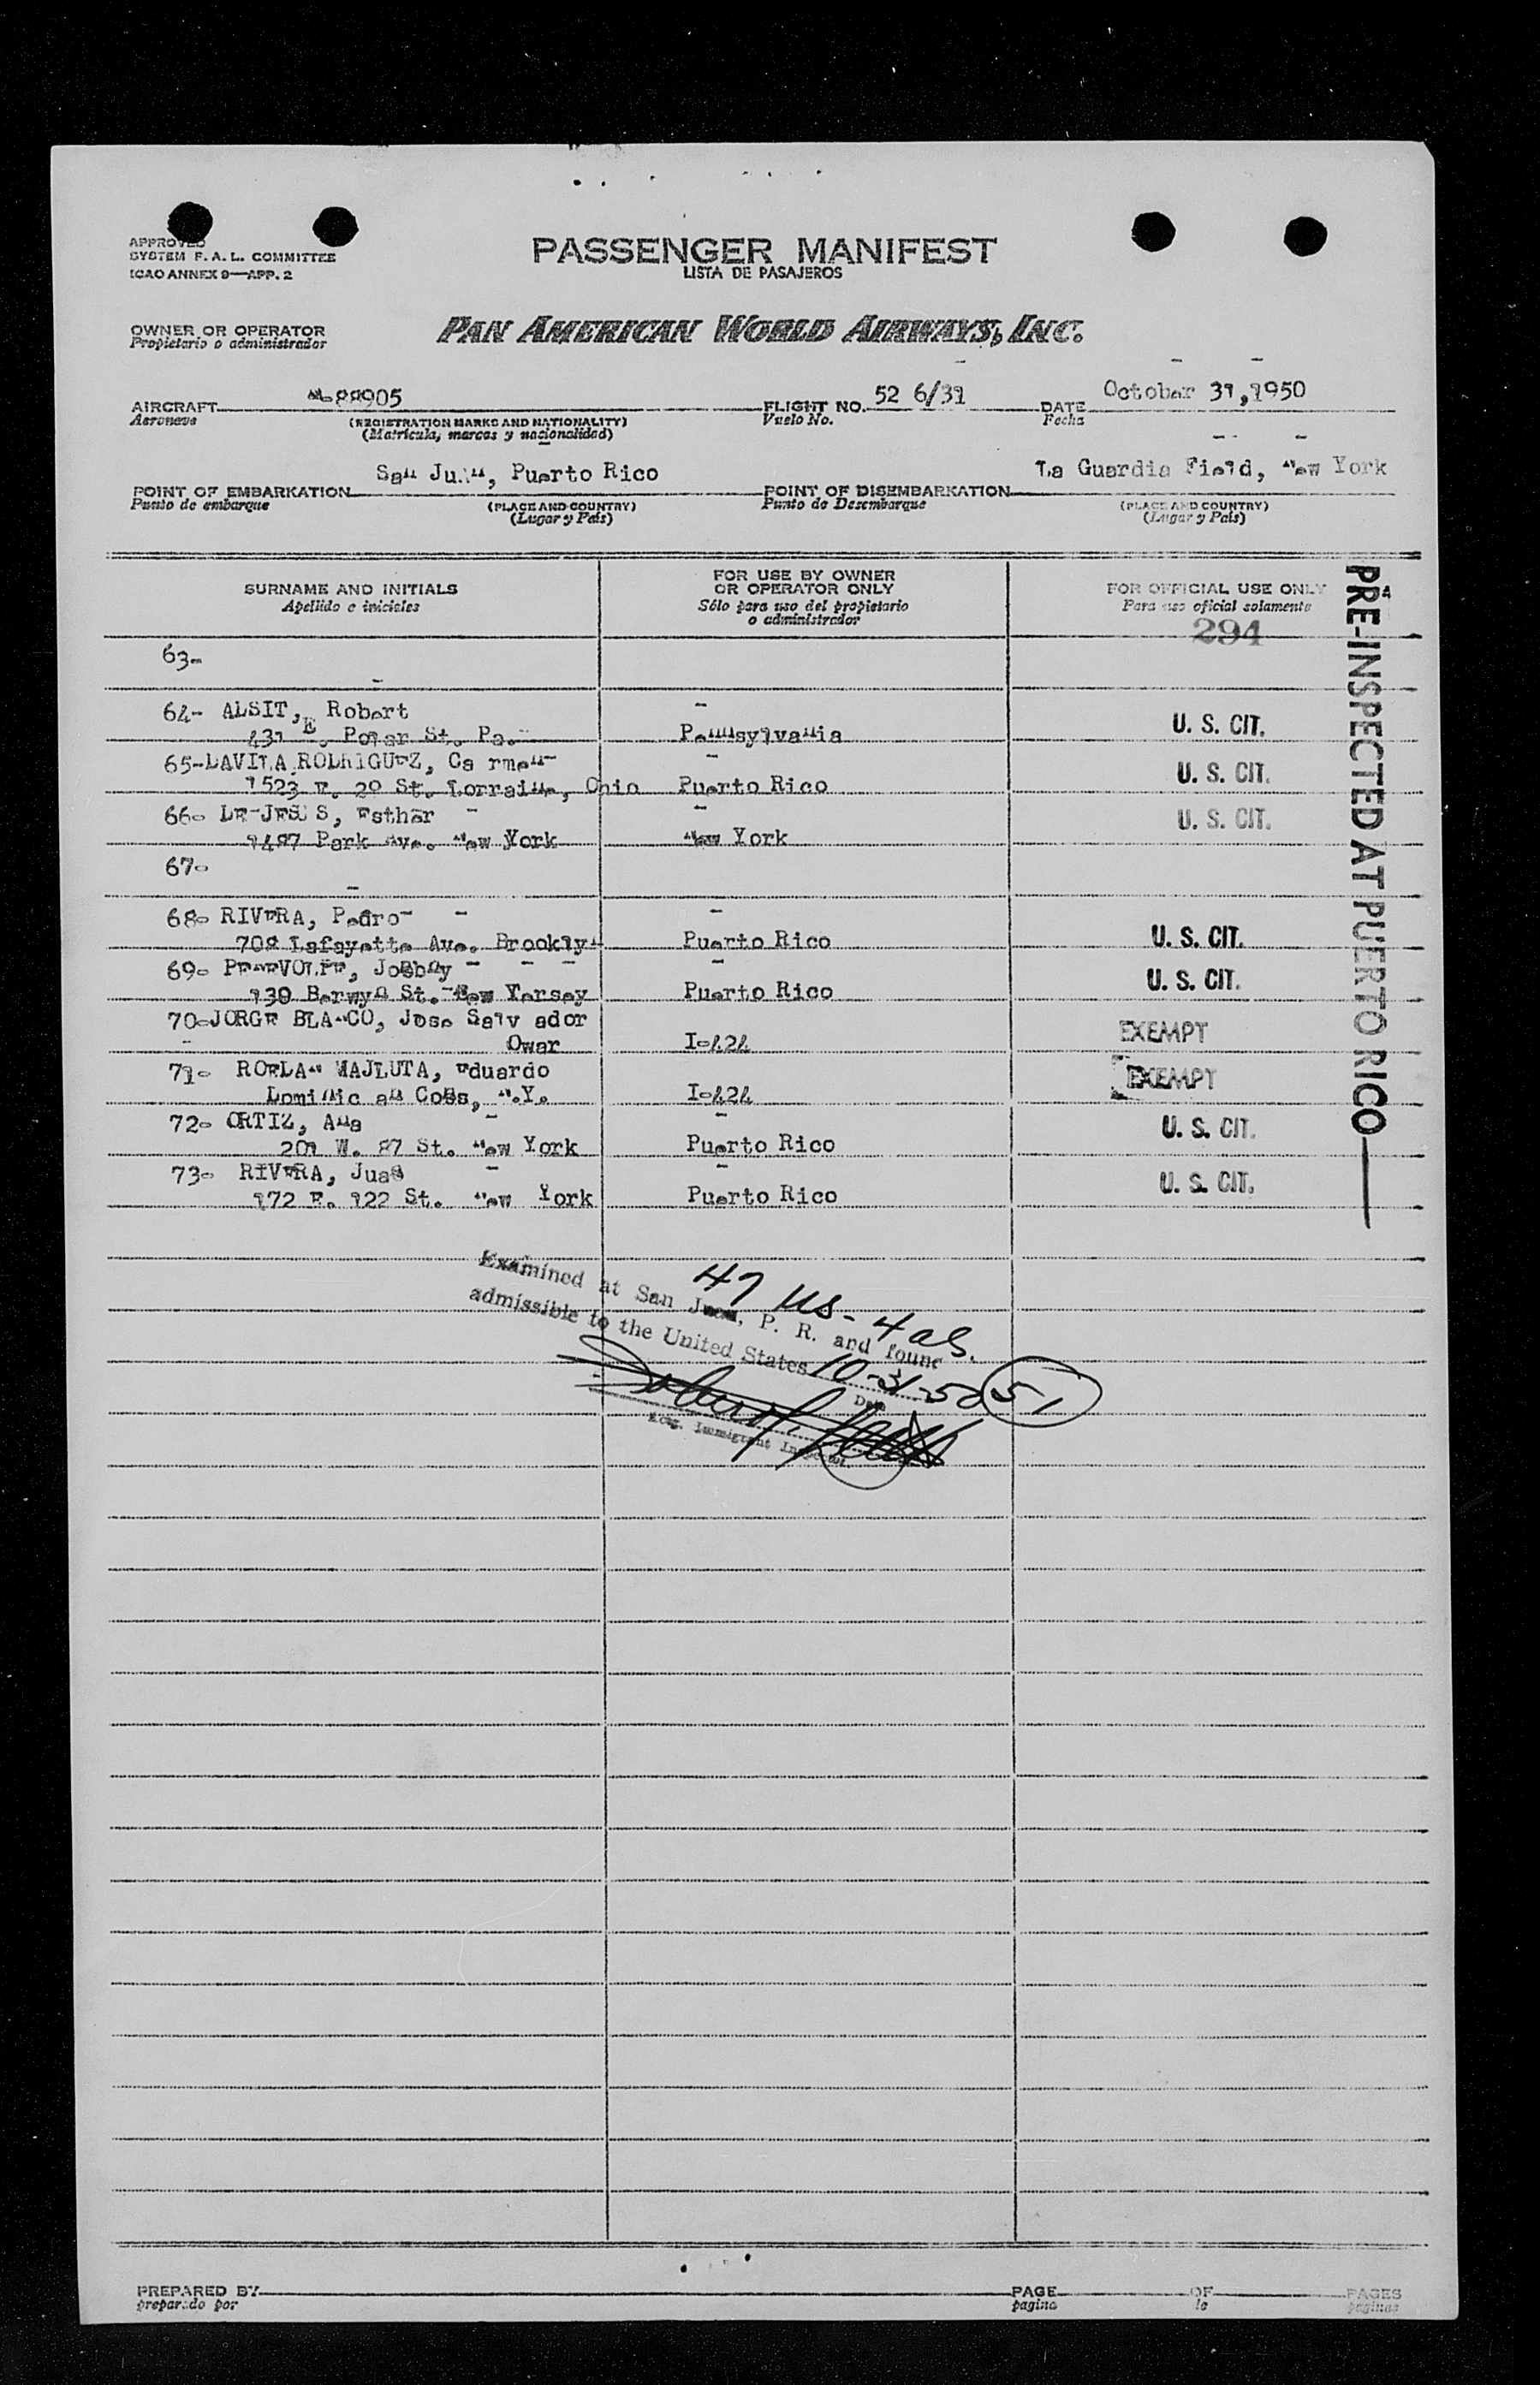 APPROVED
SYSTEM F. A. L. COMMITTEE
ICAO ANNEX 9—APP. 2
PASSENGER MANIFEST
LISTA DE PASAJEROS
OWNER OR OPERATOR
Propietario o administrador
PAN AMERICAN WORLD AIRWAYS, INC.
AIRCRAFT N-88905
Aeronave
(REGISTRATION MARKS AND NATIONALITY)
(Matrícula, marcas y nacionalidad)
FLIGHT NO. 52 6/31
Vuelo No.
DATE October 31,1950
Fecha
POINT OF EMBARKATION San Juan, Puerto Rico
Punto de embarque
(PLACE AND COUNTRY)
(Lugar y País)
POINT OF DISEMBARKATION La Guardia Field, New York
Punto de Desembarque
(PLACE AND COUNTRY)
(Lugar y País)
SURNAME AND INITIALS
Apellido e iniciales
FOR USE BY OWNER
OR OPERATOR ONLY
Sólo para uso del propietario
o administrador
FOR OFFICIAL USE ONLY
Para uso oficial solamente
294
PRE-INSPECTED AT PUERTO RICO
63-
64- ALSIT, Robert
431 E. Poplar St. Pa. Pennsylvania U. S. CIT.
65-DAVILA RODRIGUEZ, Carmen
1523 E. 20 St. Lorraine, Ohio Puerto Rico U. S. CIT.
66- DE-JESUS, Esther
1487 Park Ave. New York New York U. S. CIT.
67-
68- RIVERA, Pedro
708 Lafayette Ave. Brooklyn Puerto Rico U. S. CIT.
69-
130 Berwyn St. New Yersey Puerto Rico U. S. CIT.
70-JORGE BLANCO, Jose Salvador
Owar I-424 EXEMPT
71- ROELAN MAJLUTA, Eduardo
Dominican Cons, N.Y. I-424 EXEMPT
72- ORTIZ, Ana
201 W. 87 St. New York Puerto Rico U. S. CIT.
73- RIVERA, Juan
172 E. 122 St. New York Puerto Rico U. S. CIT.
47 US - 4 als.
Examined at San Juan, P. R. and found
admissible to the United States 10-31-50 51
Date
Immigrant Inspector
PREPARED BY
preparado por
PAGE OF PAGES
pagina de paginas